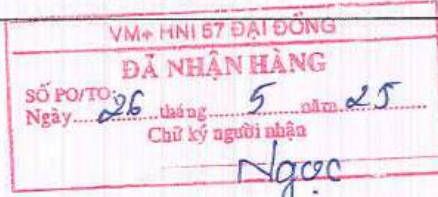 VM+ HNI 67 ĐẠI ĐỒNG
ĐÃ NHẬN HÀNG
SỐ PO/TO:
Ngày.....26.....tháng.....5.....năm 25
Chữ ký người nhận
Ngọc